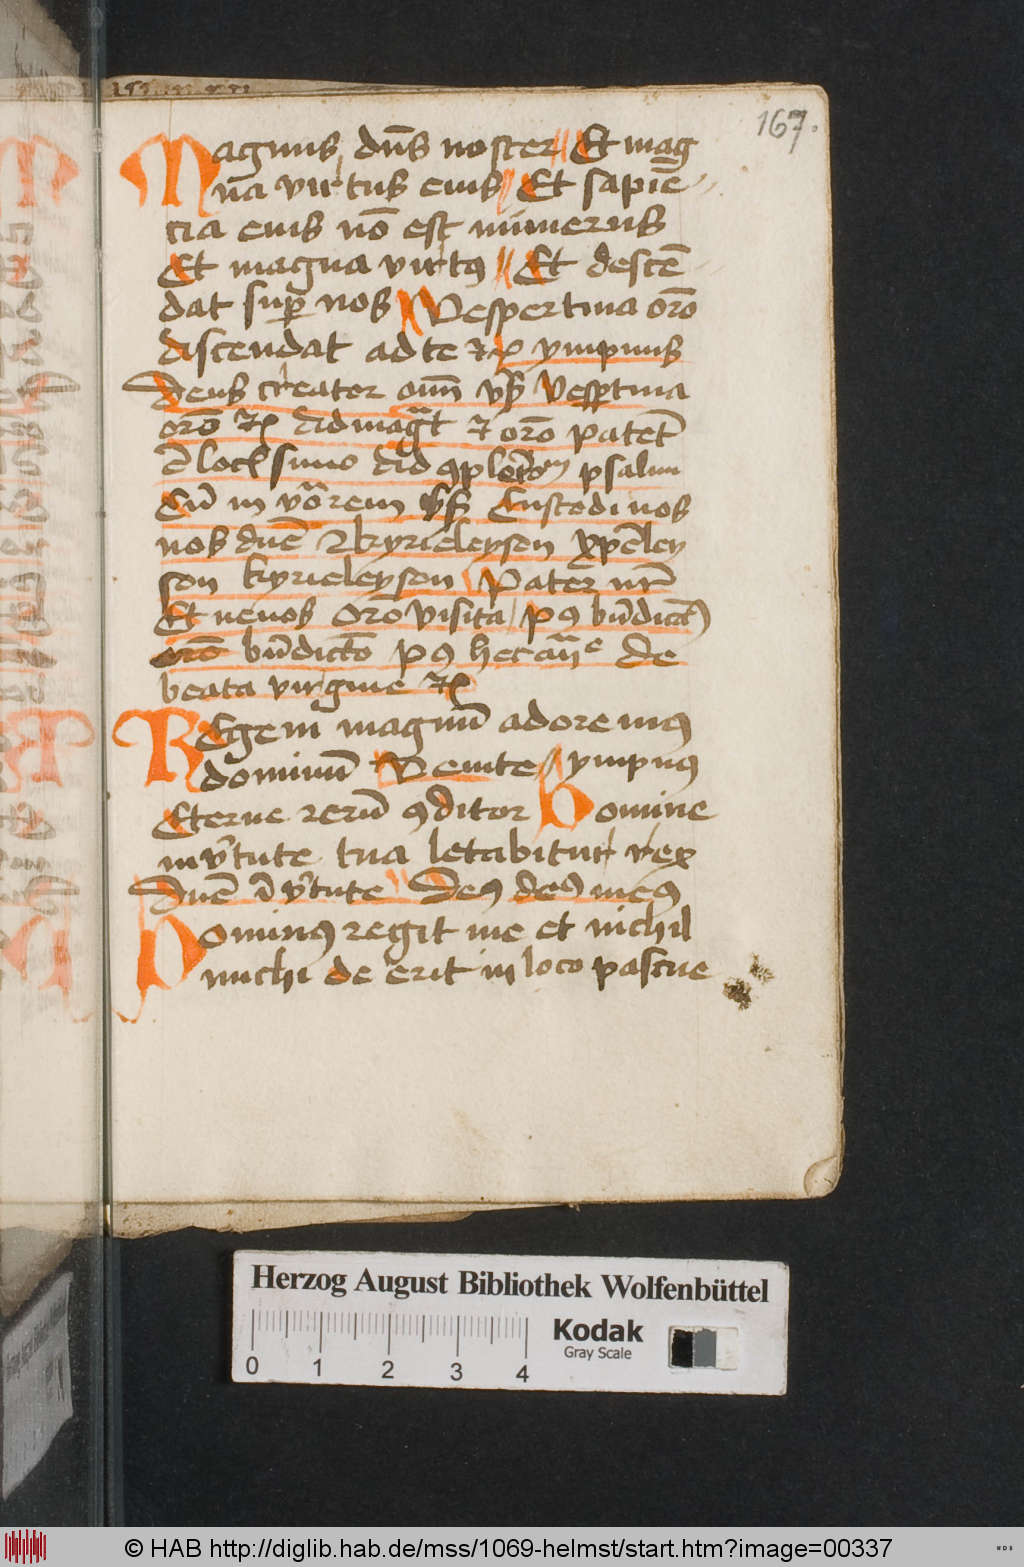 167.
Magnus dn̄s noster Et mag
na virtus eius Et sapiē
cia eius nō est numerus
Et magna virtꝰ Et descē
dat suꝑ nos Vespertina orō
discendat ad te ympnus
Deus creator oīm Vespertina
orō ad magt orō patet
psalm
Cū in Custodi nos
nos dn̄e kyrieleyson xp̄eley
son kyrieleyson Pater nr̄
Et ne nos Oro visita pꝰ
orō pꝰ hec de
beata virgine
REgem magnū adoremus
dominū Venite ympnꝰ
Eterne rerū ꝯditor Domine
in vtute tua letabitur rex
Dn̄e ī vtute Deꝰ deꝰ meꝰ
Dominꝰ regit me et nichil
michi de erit in loco pascue
Herzog August Bibliothek Wolfenbüttel
0 1 2 3 4
Kodak
Gray Scale
© HAB http://diglib.hab.de/mss/1069-helmst/start.htm?image=00337